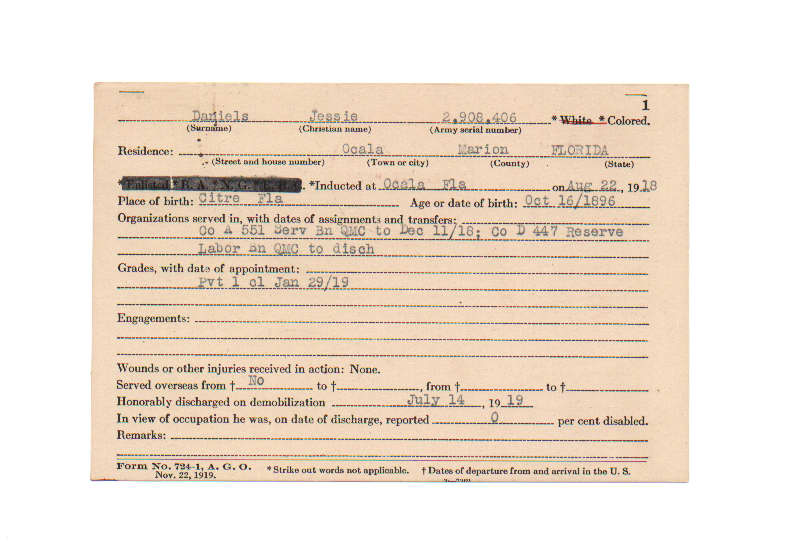 1
Daniels Jessie 2,908,406 *White *Colored.
(Surname) (Christian name) (Army serial number)
Residence: Ocala Marion FLORIDA
(Street and house number) (Town or city) (County) (State)
*Enlisted *R. A. *N. G. *E. R. C. *Inducted at Ocala Fla on Aug 22, 1918
Place of birth: Citre Fla Age or date of birth: Oct 16/1896
Organizations served in, with dates of assignments and transfers:
Co A 551 Serv Bn QMC to Dec 11/18; Co D 447 Reserve
Labor Bn QMC to disch
Grades, with date of appointment:
Pvt 1 cl Jan 29/19
Engagements:
Wounds or other injuries received in action: None.
Served overseas from † No to †, from † to †
Honorably discharged on demobilization July 14, 1919
In view of occupation he was, on date of discharge, reported 0 per cent disabled.
Remarks:
Form No. 724-1, A. G. O. *Strike out words not applicable. † Dates of departure from and arrival in the U. S.
Nov. 22, 1919.